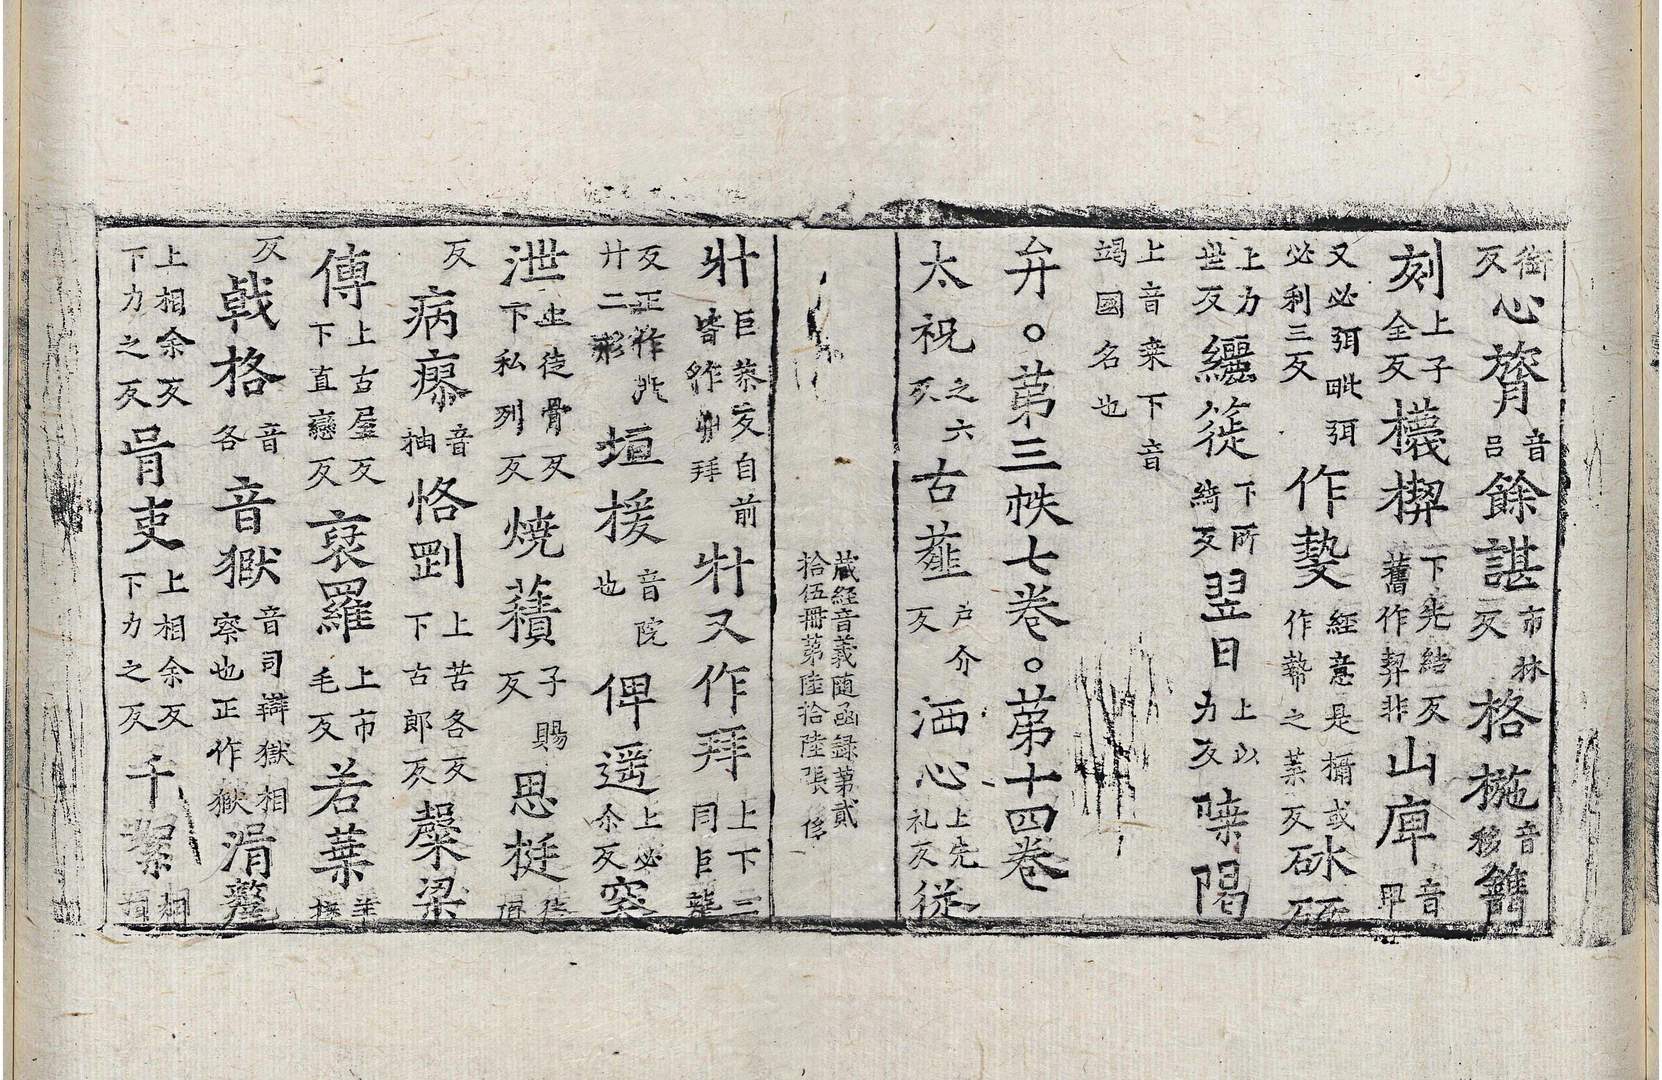 銜反心膂音呂餘諶市林反格㮛音移鐫
刻上子全反𣟄楔下先結反舊作契非山庫音甲
又必弭毗弭必利三反作𫝑經意是攝或作𫝑之葉反砅砨
上力世反纚簁下所綺反翌日上以力反㗼陽
上音桒下音竭國名也
弁○第三帙七卷○第十四卷
太祝之六反古薤户介反洒心上先礼反從
藏經音義随函録第貳
拾伍冊第陸拾陸張
壯巨恭反自前皆作拜牜又作拜上下二同巨龍
反正作廾二形垣援音院也俾遥上必尔反突
泄上徒骨反下私列反燒䕪子賜反恩挺徒頂
反病瘳音抽恪剛上苦各反下古郎反糳梁
傳上古屋反下直戀反裒羅上市毛反若葉
反戟格音各音獄音司辯獄相察也正作獄涓氂
上相余反下力之反胥吏上相余反下力之反千纍